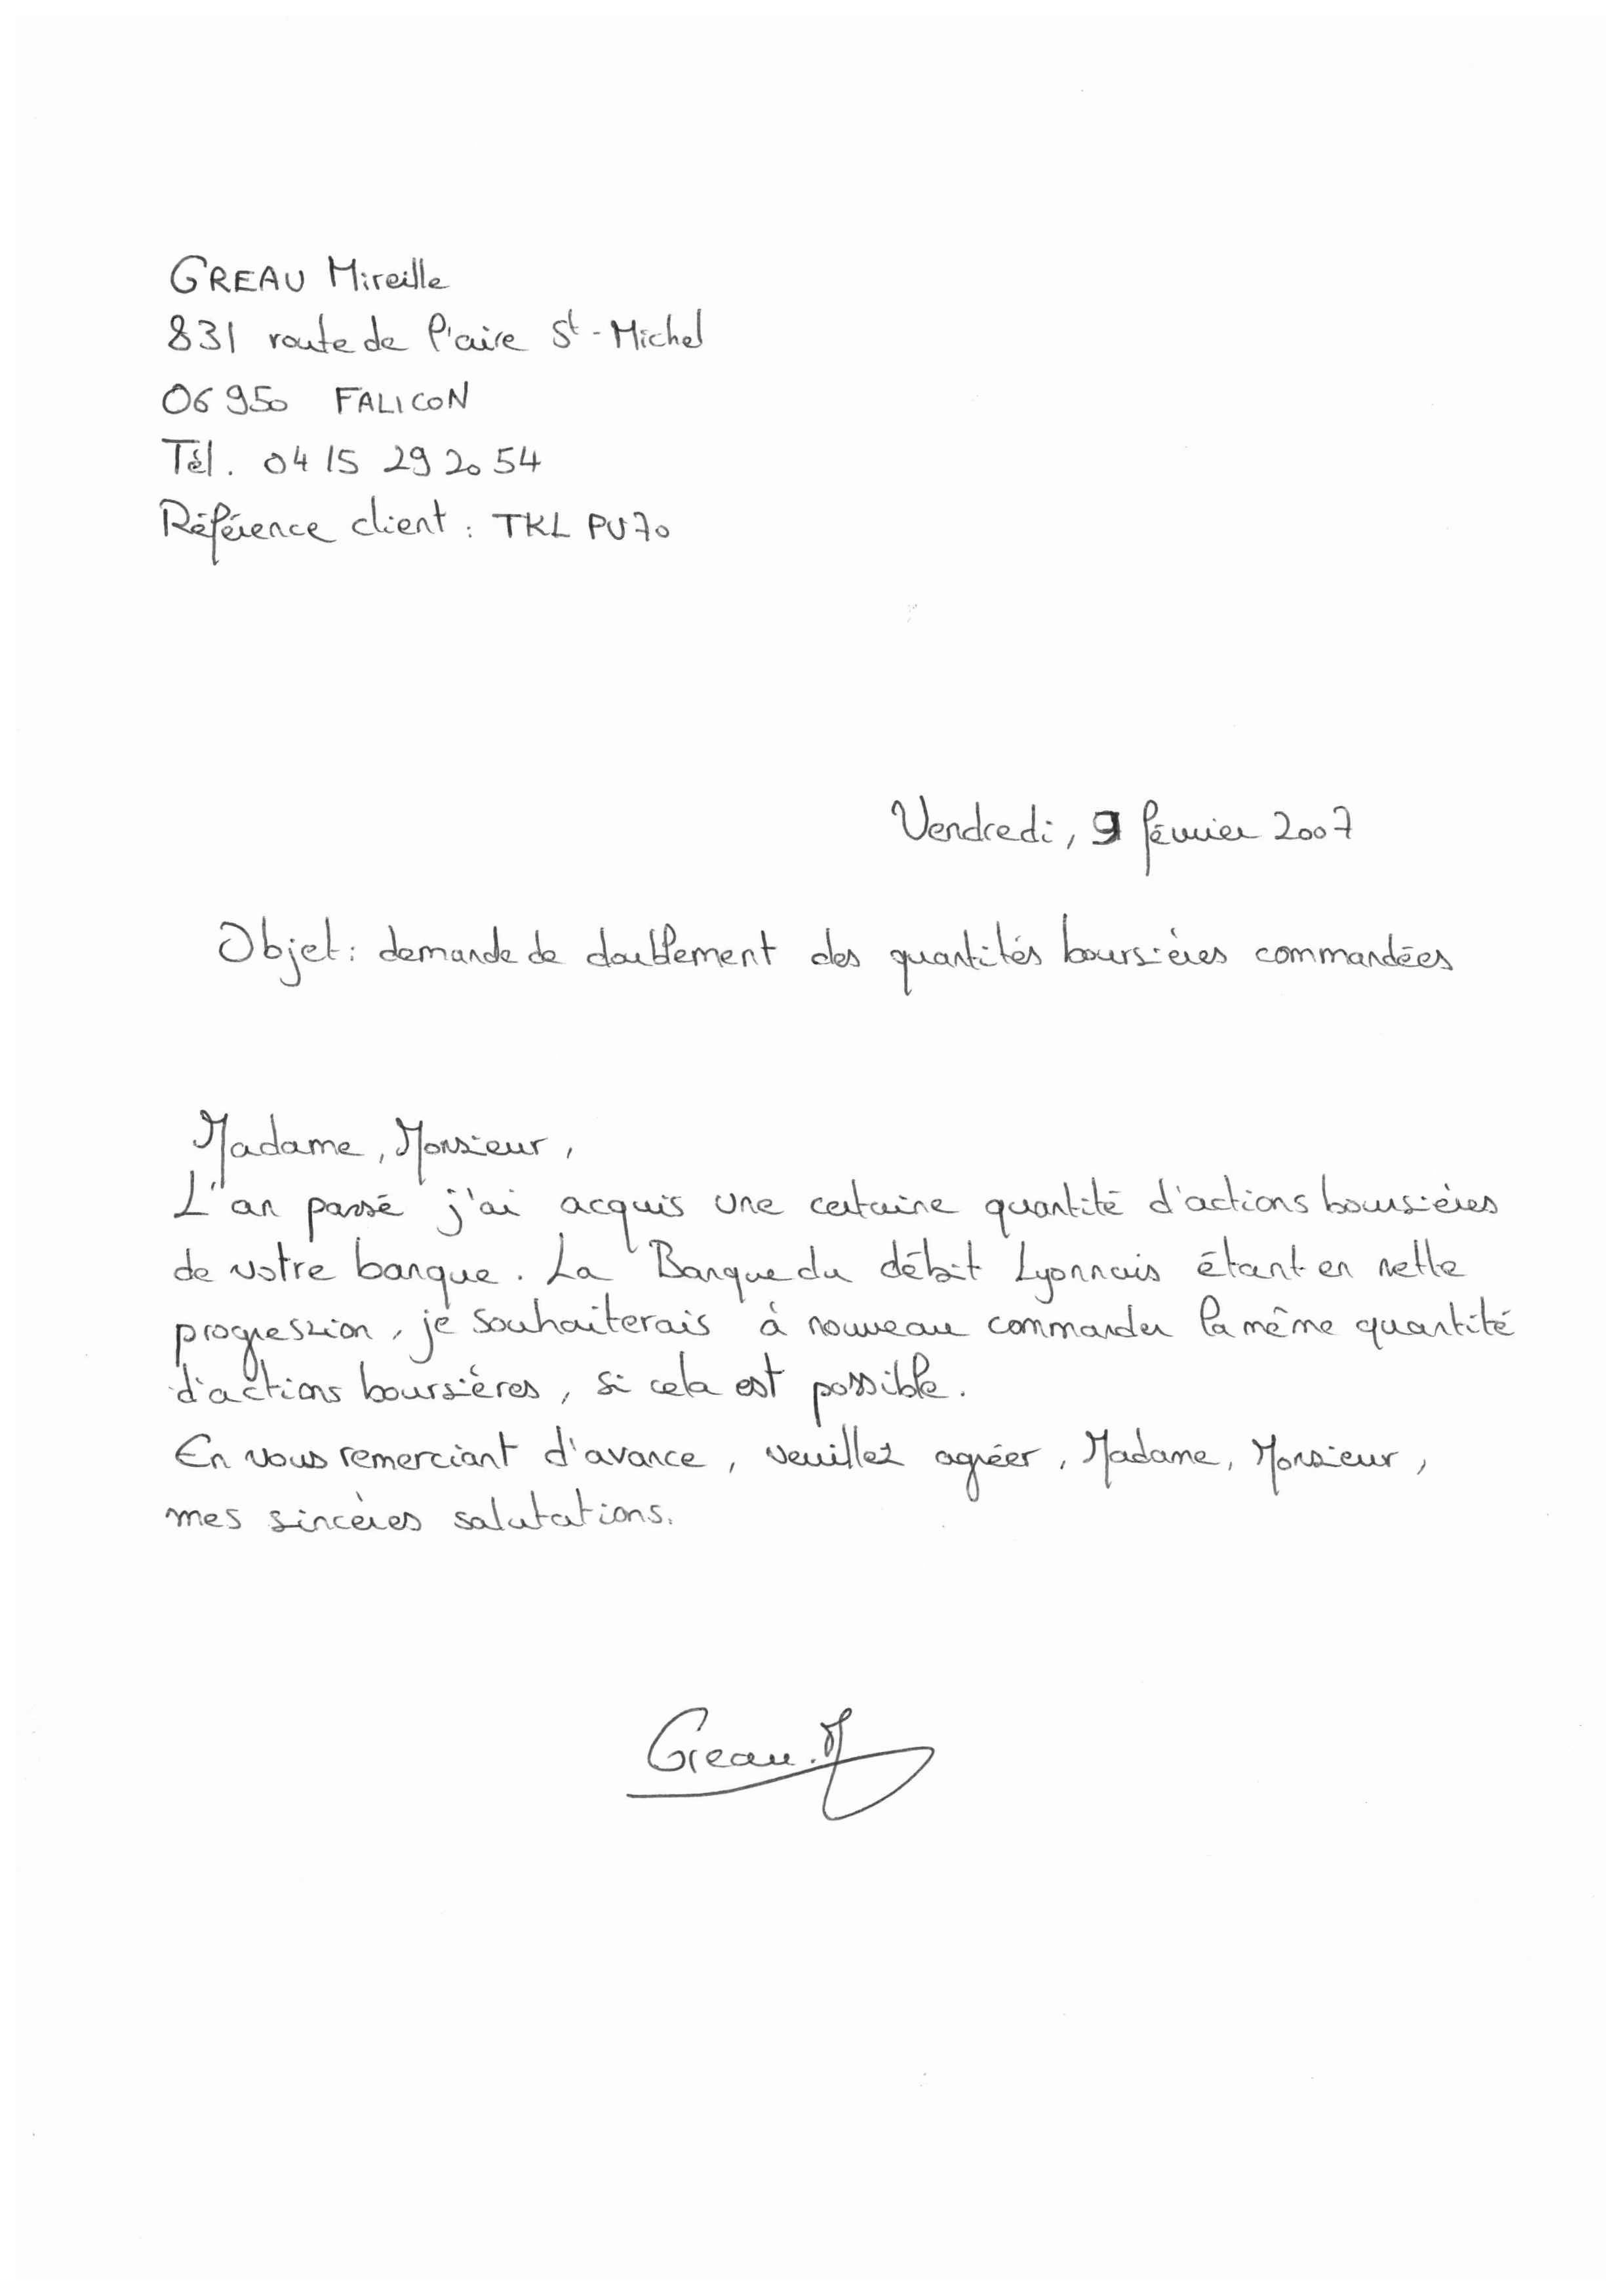 GREAU Mireille
831 route de l'aire St-Michel
06950 FALICON
Tél. 04 15 29 20 54
Référence client : TKL PU70
Vendredi, 9 février 2007
Objet : demande de doublement des quantités boursières commandées
Madame, Monsieur,
L'an passé j'ai acquis une certaine quantité d'actions boursières
de votre banque. La Banque du débit Lyonnais étant en nette
progression, je souhaiterais à nouveau commander la même quantité
d'actions boursières, si cela est possible.
En vous remerciant d'avance, veuillez agréer, Madame, Monsieur,
mes sincères salutations.
Greau.M